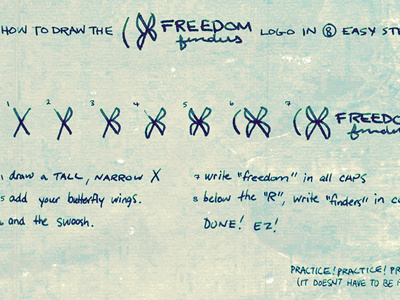 HOW TO DRAW THE FREEDOM finders LOGO IN 8 EASY
1 2 3 4 5 6 7
FREEDO
1 draw a TALL, NARROW X
5 add your butterfly wings.
and the swoosh.
7 write "freedom" in all CAPS
8 below the "R", write "finders" in
DONE! EZ!
PRACTICE! PRACTICE! PR
(IT DOESNT HAVE TO BE